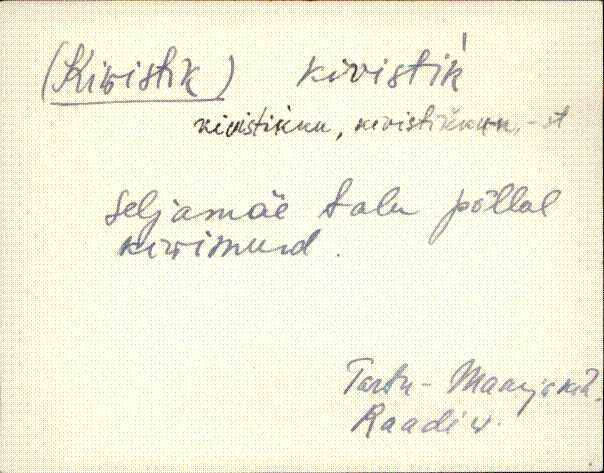 (Kivistik) kivistik̀
kivistikku, kivistikkun, -st
Seljamäe talu põllal
kivimurd.
Tartu-Maarja kih.
Raadi v.